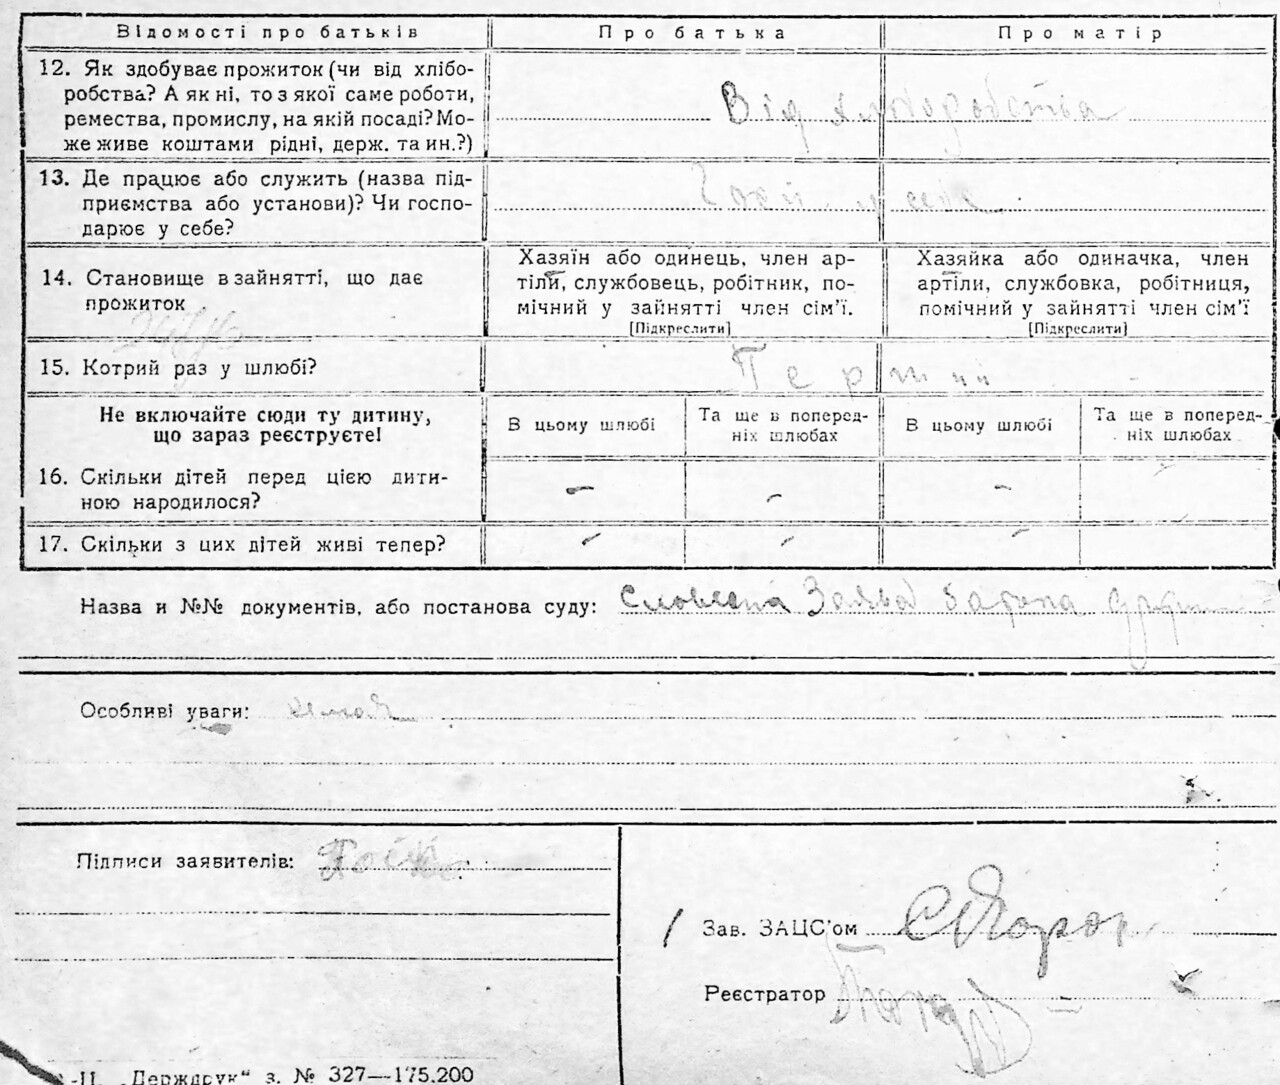 Відомості про батьків Про батька Про матір
12. Як здобуває прожиток (чи від хлібо-
робства? А як ні, то з якої саме роботи,
ремества, промислу, на якій посаді? Мо-
же живе коштами рідні, держ. та ин.?)
Від хліборобства
13. Де працює або служить (назва під-
приємства або установи)? Чи госпо-
дарює у себе?
у себе
14. Становище в зайнятті, що дає
прожиток
Хазяїн або одинець, член ар-
тіли, службовець, робітник, по-
мічний у зайнятті член сім'ї.
[Підкреслити]
Хазяйка або одиначка, член
артіли, службовка, робітниця,
помічний у зайнятті член сім'ї
[Підкреслити]
15. Котрий раз у шлюбі?
Перший
Не включайте сюди ту дитину,
що зараз реєструєте!
В цьому шлюбі
Та ще в поперед-
ніх шлюбах
В цьому шлюбі
Та ще в поперед-
ніх шлюбах
16. Скільки дітей перед цією дити-
ною народилося?
- - -
17. Скільки з цих дітей живі тепер?
- - -
Назва и №№ документів, або постанова суду: Словесна Заява батька
Особливі уваги: немає
Підписи заявителів:
Зав. ЗАЦС'ом
Реєстратор
-П. „Держдрук“ з. № 327—175.200